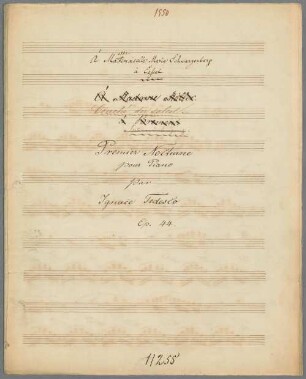 1550
À Mademoiselle Marie
à
À Madame
à
Premier Nocturne
pour Piano
par
Ignace Tedesco
Op. 44.
11255